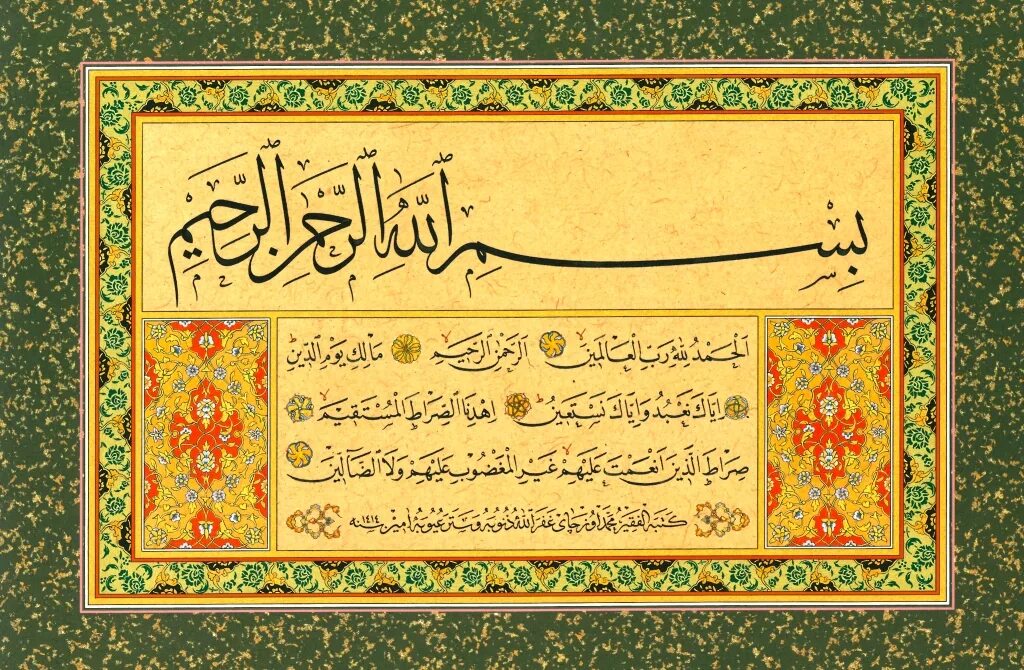 بِسْمِ ٱللَّهِ ٱلرَّحْمٰنِ ٱلرَّحِيمِ
اَلْحَمْدُ لِلّٰهِ رَبِّ الْعَالَمِينَ اَلرَّحْمٰنِ الرَّحِيمِ مَالِكِ يَوْمِ الدِّينِ
اِيَّاكَ نَعْبُدُ وَاِيَّاكَ نَسْتَعِينُ اِهْدِنَا الصِّرَاطَ الْمُسْتَقِيمَ
صِرَاطَ الَّذِينَ اَنْعَمْتَ عَلَيْهِمْ غَيْرِ الْمَغْضُوبِ عَلَيْهِمْ وَلَا الضَّالِّينَ
كتبه الفقير محمد اوزچاى غفر الله ذنوبه وستر عيوبه امين سنه ١٤١٤